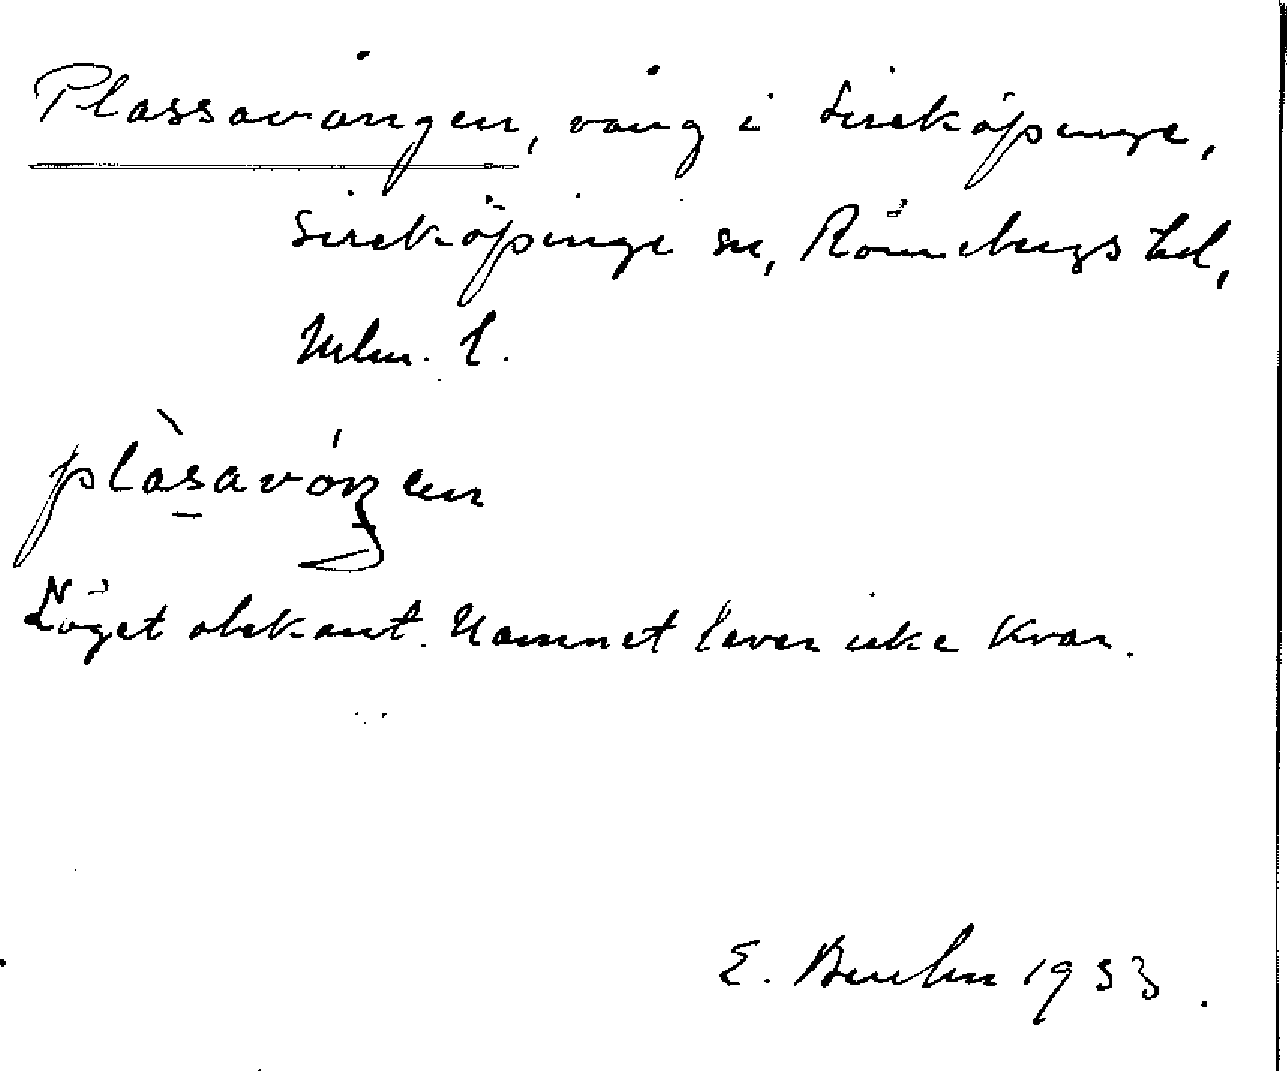 Plassavången, vång i Sireköpinge,
Sireköpinge sn, Rönnebergs hd,
Mlm. l.
plàsavóŋen
Läget obekant. Namnet lever icke kvar.
E. Bruhn 1933.